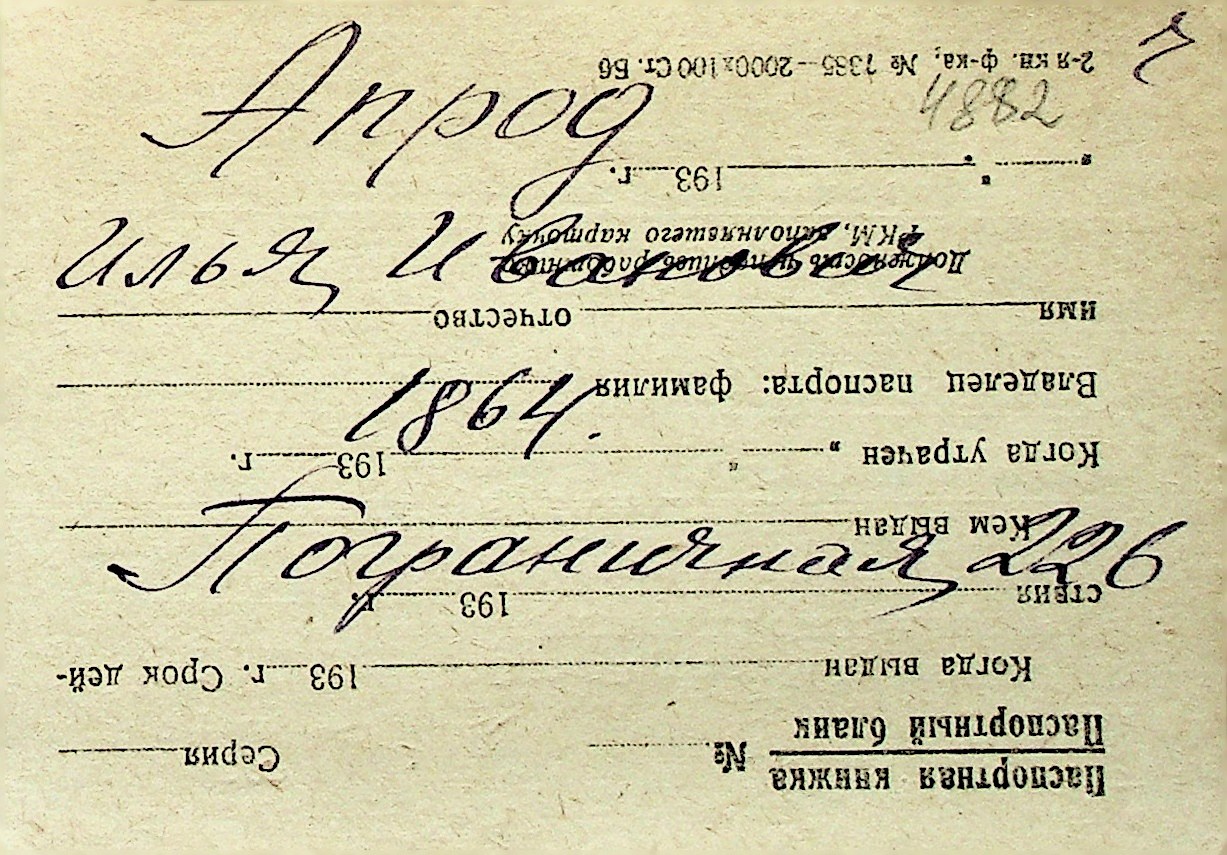 Апрод
4882
Илья Иванович
1864.
Пограничная 226
Паспортная книжка
Паспортный бланк
№ Серия
Когда выдан 193 г. Срок дей-
ствия 193 г.
Кем выдан
Когда утрачен „ " 193 г.
Владелец паспорта: фамилия
имя отчество
Должность и подпись работника
РКМ, заполнявшего карточку
" " 193 г.
2-я кн. ф-ка, № 7385—2000х100 Ст. Б6